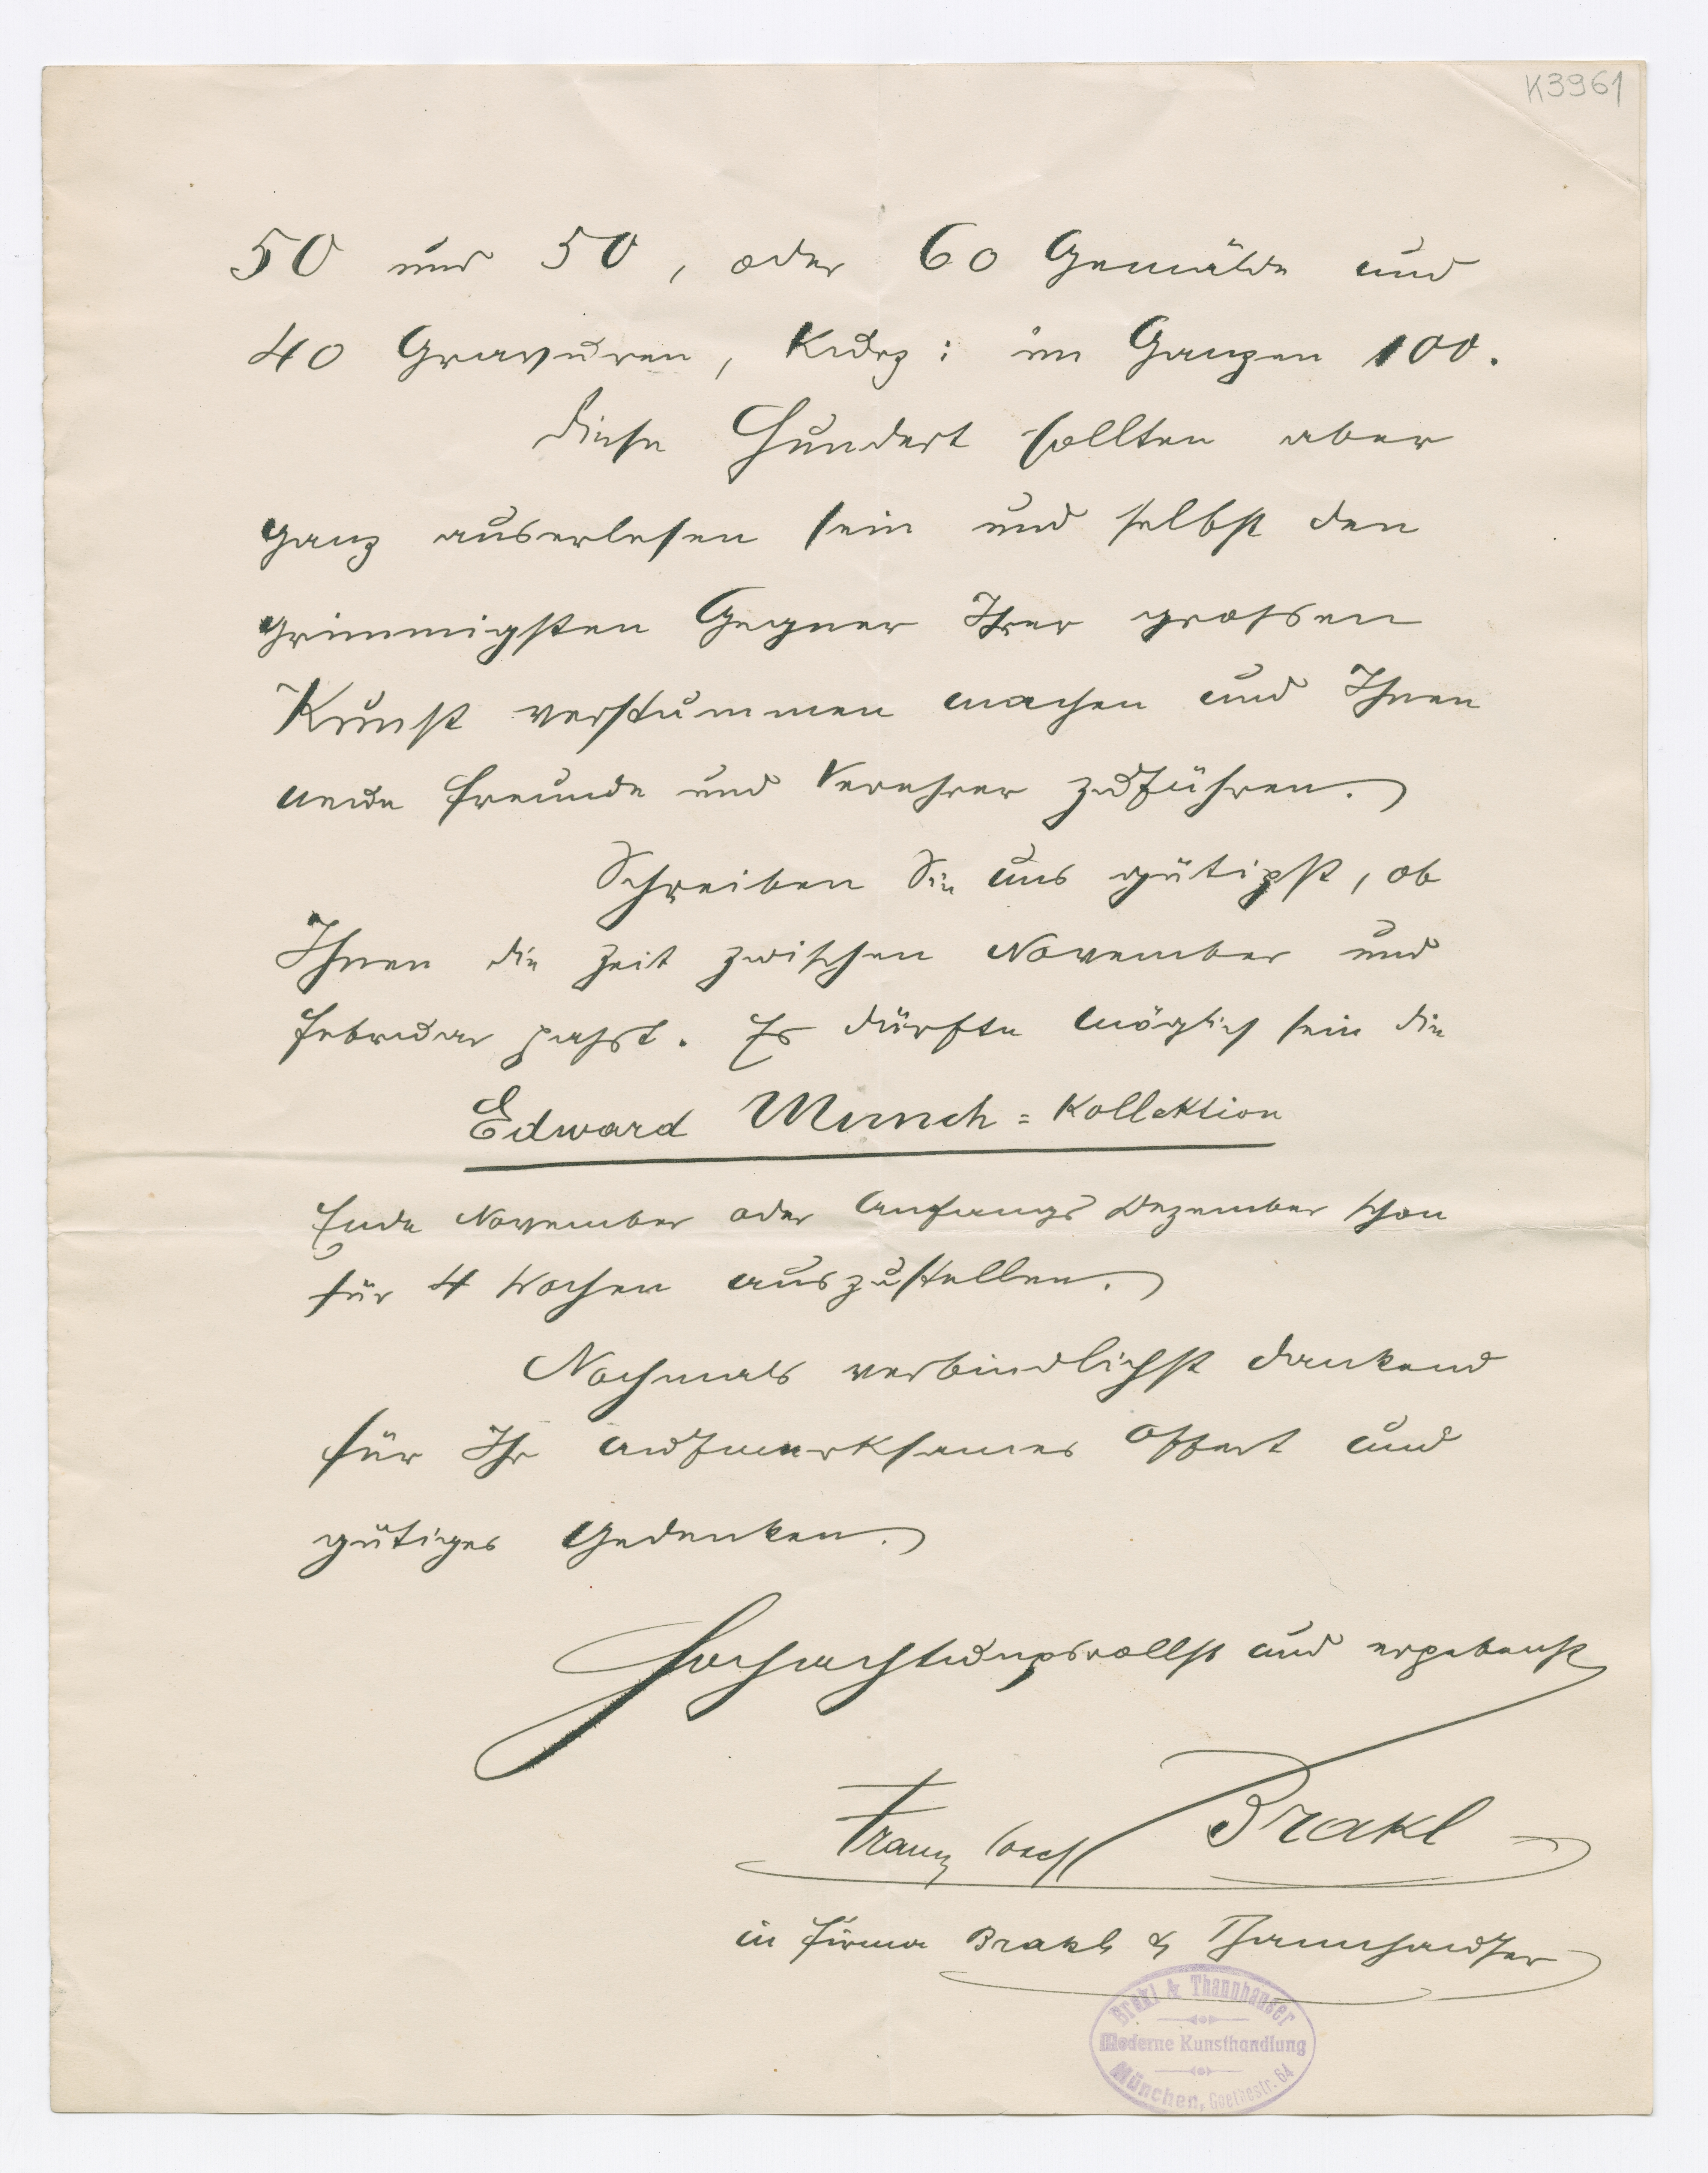 K3961
50 und 50, oder 60 Gemälde und
40 Gravuren, Kurz: im Ganzen 100.
Diese Hundert sollten aber
ganz auserlesen sein und selbst den
grimmigsten Gegner Ihrer grossen
Kunst verstummen machen und Ihnen
neue Freunde und Verehrer zuführen.
Schreiben Sie uns gütigst, ob
Ihnen die Zeit zwischen November und
Februar passt. Es dürfte möglich sein die
Edward Munch = Kollektion
Ende November oder Anfangs Dezember schon
für 4 Wochen auszustellen.
Nochmals verbindlichst dankend
für Ihr aufmerksames Offert und
gütiges Gedenken.
Hochachtungsvollst und ergebenst
Franz Josef Brakl
in Firma Brakl & Thannhauser
Brakl & Thannhauser
Moderne Kunsthandlung
München, Goethestr. 64